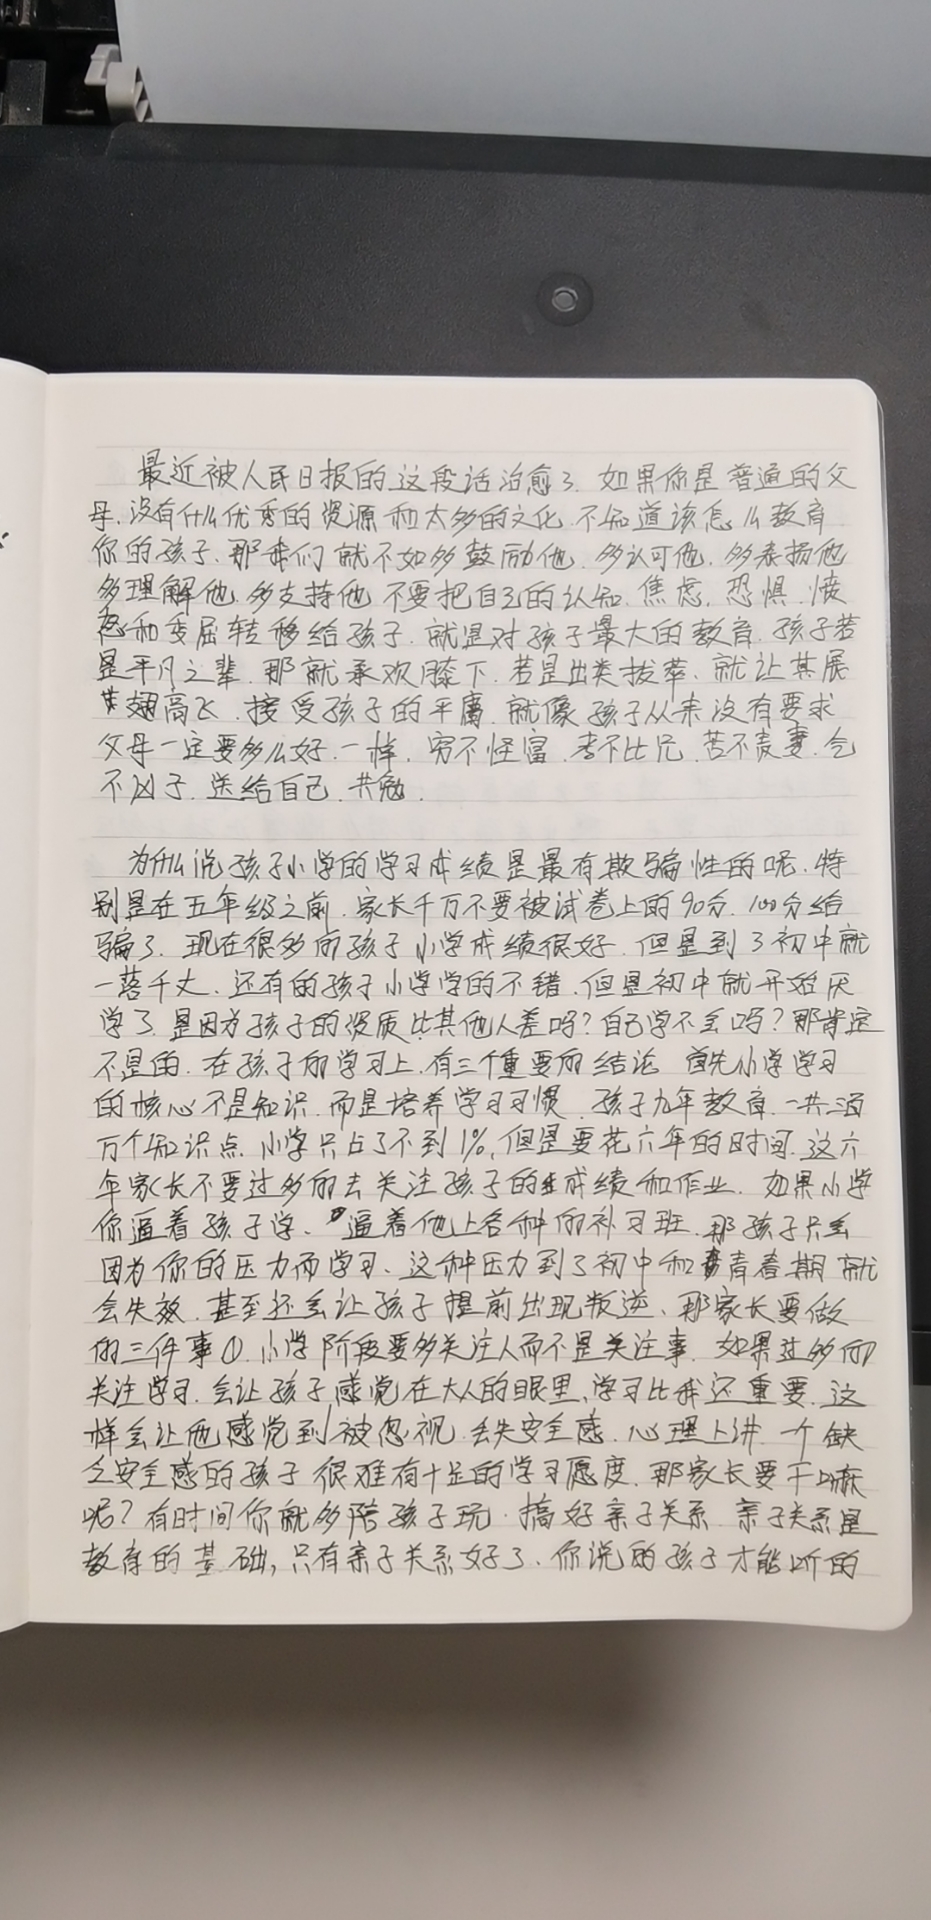 最近被人民日报的这段话治愈了.如果你是普通的父
母.没有什么优秀的资源和太多的文化.不知道该怎么教育
你的孩子.那我们就不如多鼓励他.多认可他.多表扬他
多理解他.多支持他.不要把自己的认知.焦虑.恐惧.愤
怒和委屈转移给孩子.就是对孩子最大的教育.孩子若
是平凡之辈.那就承欢膝下.若是出类拔萃.就让其展
翅高飞.接受孩子的平庸.就像孩子从来没有要求
父母一定要多么好.一样.穷不怪富.孝不比兄.苦不责妻.气
不凶子.送给自己.共勉.
为什么说孩子小学的学习成绩是最有欺骗性的呢.特
别是在五年级之前.家长千万不要被试卷上的90分.100分给
骗了.现在很多的孩子小学成绩很好.但是到了初中就
一落千丈.还有的孩子小学学的不错.但是初中就开始厌
学了.是因为孩子的资质比其他人差吗?自己学不会吗?那肯定
不是的.在孩子的学习上.有三个重要的结论.首先小学学习
的核心不是知识.而是培养学习习惯.孩子九年教育.一共三百
万个知识点.小学只占了不到1%,但是要花六年的时间.这六
年家长不要过多的去关注孩子的成绩和作业.如果小学
你逼着孩子学.逼着他上各种的补习班.那孩子只会
因为你的压力而学习.这种压力到了初中和青春期就
会失效.甚至还会让孩子提前出现叛逆.那家长要做
的三件事①.小学阶段要多关注人而不是关注事.如果过多的
关注学习.会让孩子感觉在大人的眼里.学习比我还重要.这
样会让他感觉到被忽视.丢失安全感.心理上讲.一个缺
乏安全感的孩子很难有十足的学习愿度.那家长要干嘛
呢?有时间你就多陪孩子玩.搞好亲子关系.亲子关系是
教育的基础,只有亲子关系好了.你说的孩子才能听的